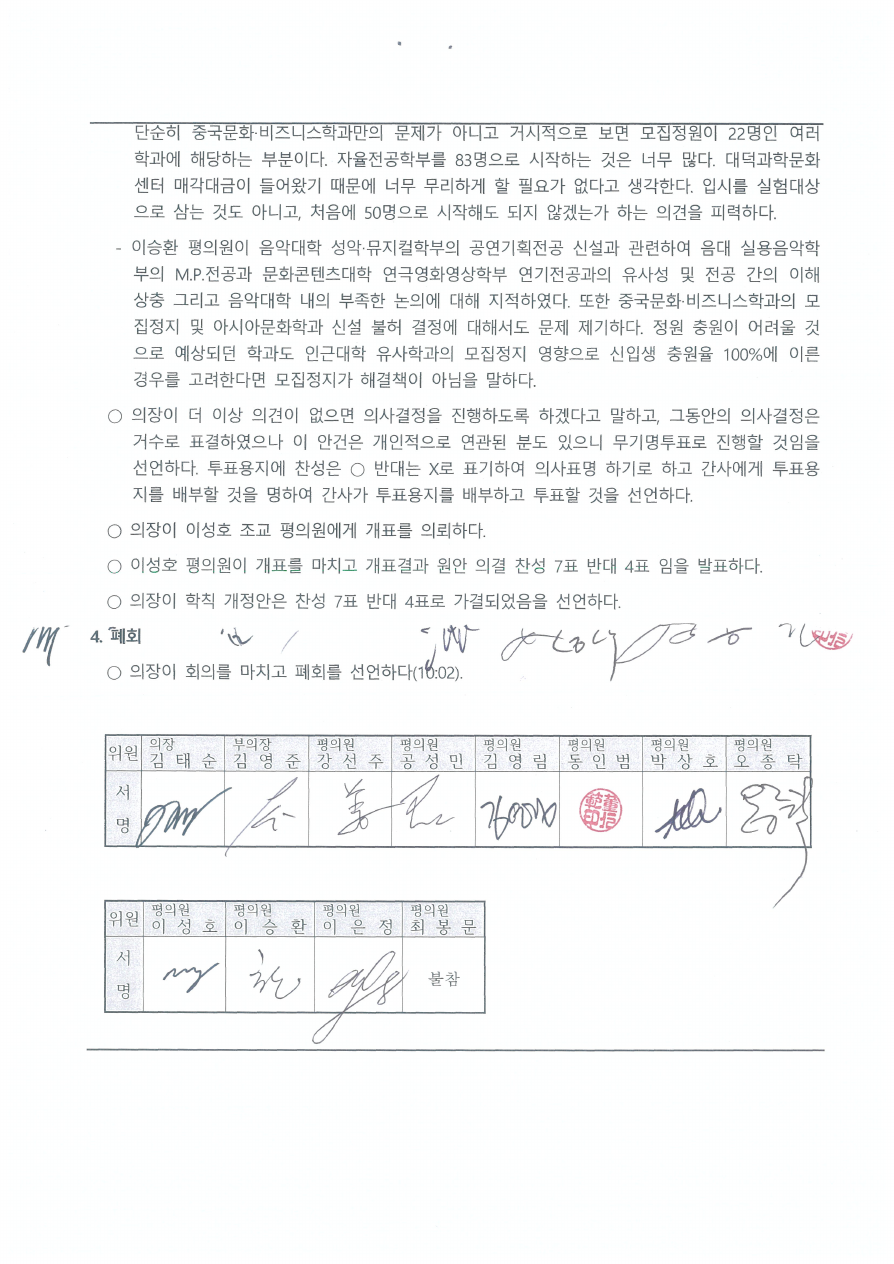 단순히 중국문화·비즈니스학과만의 문제가 아니고 거시적으로 보면 모집정원이 22명인 여러
학과에 해당하는 부분이다. 자율전공학부를 83명으로 시작하는 것은 너무 많다. 대덕과학문화
센터 매각대금이 들어왔기 때문에 너무 무리하게 할 필요가 없다고 생각한다. 입시를 실험대상
으로 삼는 것도 아니고, 처음에 50명으로 시작해도 되지 않겠는가 하는 의견을 피력하다.
- 이승환 평의원이 음악대학 성악·뮤지컬학부의 공연기획전공 신설과 관련하여 음대 실용음악학
부의 M.P.전공과 문화콘텐츠대학 연극영화영상학부 연기전공과의 유사성 및 전공 간의 이해
상충 그리고 음악대학 내의 부족한 논의에 대해 지적하였다. 또한 중국문화·비즈니스학과의 모
집정지 및 아시아문화학과 신설 불허 결정에 대해서도 문제 제기하다. 정원 충원이 어려울 것
으로 예상되던 학과도 인근대학 유사학과의 모집정지 영향으로 신입생 충원율 100%에 이른
경우를 고려한다면 모집정지가 해결책이 아님을 말하다.
○ 의장이 더 이상 의견이 없으면 의사결정을 진행하도록 하겠다고 말하고, 그동안의 의사결정은
거수로 표결하였으나 이 안건은 개인적으로 연관된 분도 있으니 무기명투표로 진행할 것임을
선언하다. 투표용지에 찬성은 ○ 반대는 X로 표기하여 의사표명 하기로 하고 간사에게 투표용
지를 배부할 것을 명하여 간사가 투표용지를 배부하고 투표할 것을 선언하다.
○ 의장이 이성호 조교 평의원에게 개표를 의뢰하다.
○ 이성호 평의원이 개표를 마치고 개표결과 원안 의결 찬성 7표 반대 4표 임을 발표하다.
○ 의장이 학칙 개정안은 찬성 7표 반대 4표로 가결되었음을 선언하다.
4. 폐회
○ 의장이 회의를 마치고 폐회를 선언하다(10:02).
위원 의장 김태순 부의장 김영준 평의원 강선주 평의원 공성민 평의원 김영림 평의원 동인범 평의원 박상호 평의원 오종탁
서명
위원 평의원 이성호 평의원 이승환 평의원 이은정 평의원 최봉문
서명 불참